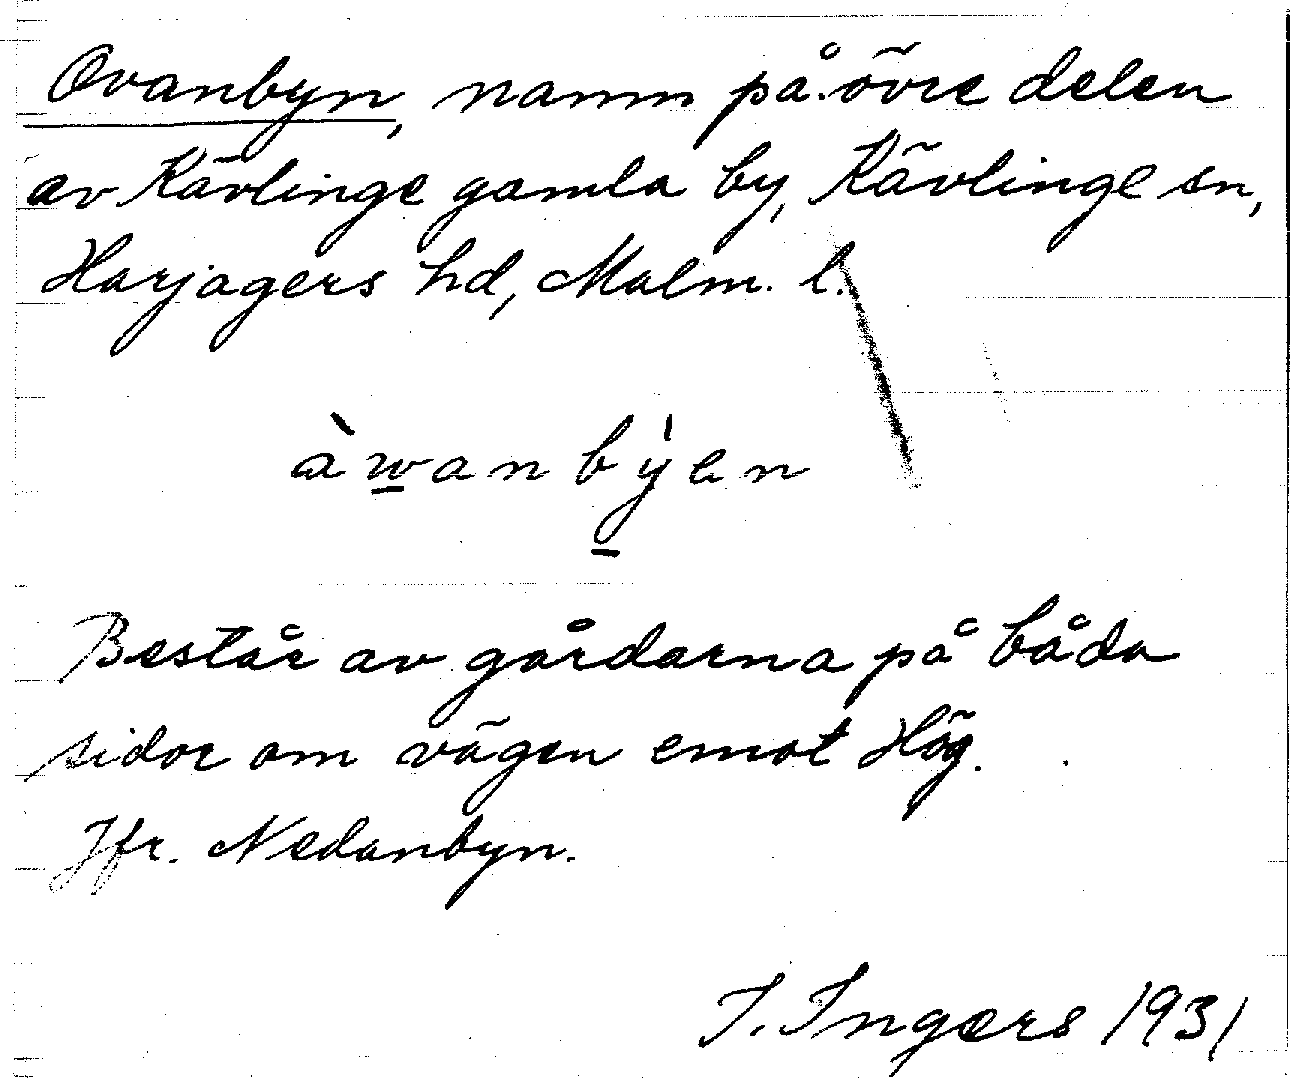 Ovanbyn, namn på övre delen
av Kävlinge gamla by, Kävlinge sn,
Harjagers hd, Malm. l.
àwanbýen
Består av gårdarna på båda
sidor om vägen emot Hög.
Jfr. Nedanbyn.
I. Ingers 1931